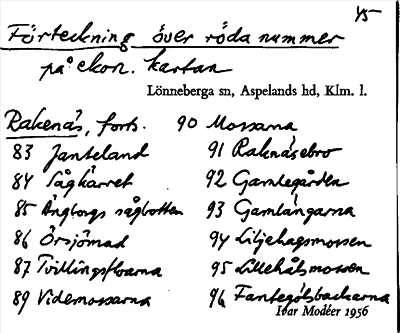 45
Förteckning över röda nummer
på ekon. kartan
Lönneberga sn, Aspelands hd, Klm. l.
Rakenäs, forts.
83 Janteland
84 Sågkärret
85 Ängborgs sågbotten
86 Örsjömad
87 Tvillingsfloarna
89 Videmossarna
90 Mossarna
91 Raknäsebro
92 Gamlegården
93 Gamlängarna
94 Liljehagsmossen
95 Lillehålsmossen
96 Fantegölsbackarna
Ivar Modéer 1956